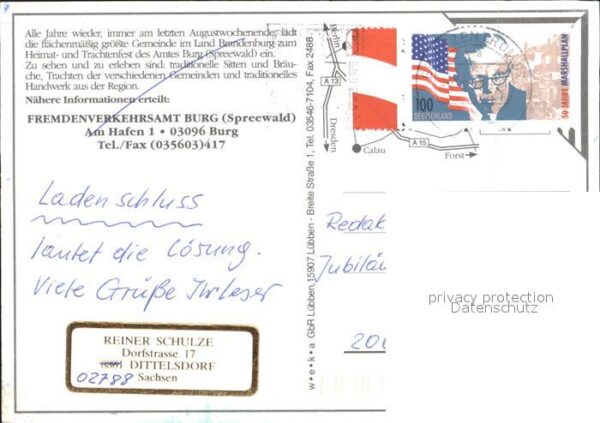 Alle Jahre wieder, immer am letzten Augustwochenende, lädt
die flächenmäßig größte Gemeinde im Land Brandenburg zum
Heimat- und Trachtenfest des Amtes Burg (Spreewald) ein.
Zu sehen und zu erleben sind: traditionelle Sitten und Bräu-
che, Trachten der verschiedenen Gemeinden und traditionelles
Handwerk aus der Region.
Nähere Informationen erteilt:
FREMDENVERKEHRSAMT BURG (Spreewald)
Am Hafen 1 • 03096 Burg
Tel./Fax (035603)417
Ladenschluss
lautet die Lösung.
Viele Grüße Ihr Leser
REINER SCHULZE
Dorfstrasse 17
DITTELSDORF
02788 Sachsen
w•e•k•a GbR Lübben, 15907 Lübben - Breite Straße 1, Tel. 03546-7104, Fax 2488
Berlin
A 13
Dresden
Calau
A 15
Forst
100
DEUTSCHLAND
50 JAHRE MARSHALLPLAN
Redak
Jubiläu
200
privacy protection
Datenschutz